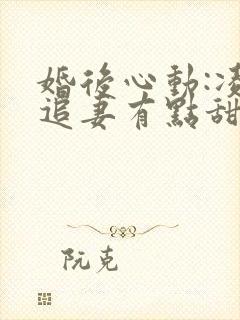 婚後心動:凌
追妻有點甜
阮克